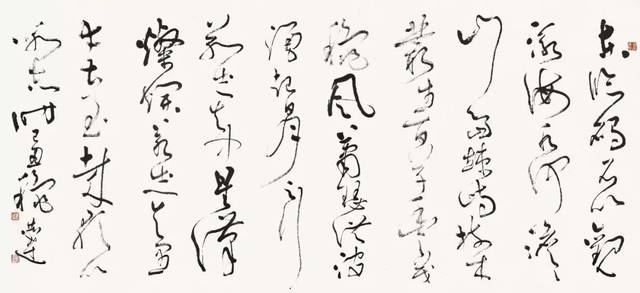 東臨碣石以觀
滄海水何澹澹
山島竦峙樹木
叢生百草豐茂
秋風蕭瑟洪波
湧起日月之行
若出其中星漢
燦爛若出其里
幸甚至哉歌以
詠志 時丑秋